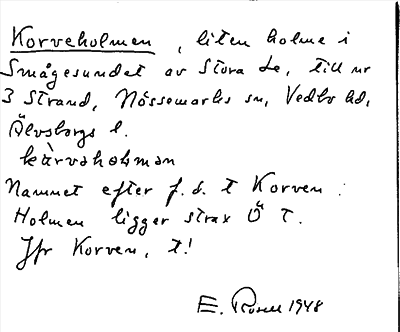 Korveholmen, liten holme i
Smågesundet av Stora Le, till nr
3 Strand, Nössemarks sn, Vedbo hd,
Älvsborgs l.
kàrvəhəlmən
Namnet efter f.d. t Korven.
Holmen ligger strax Ö T.
Jfr Korven, t!
E. 1948